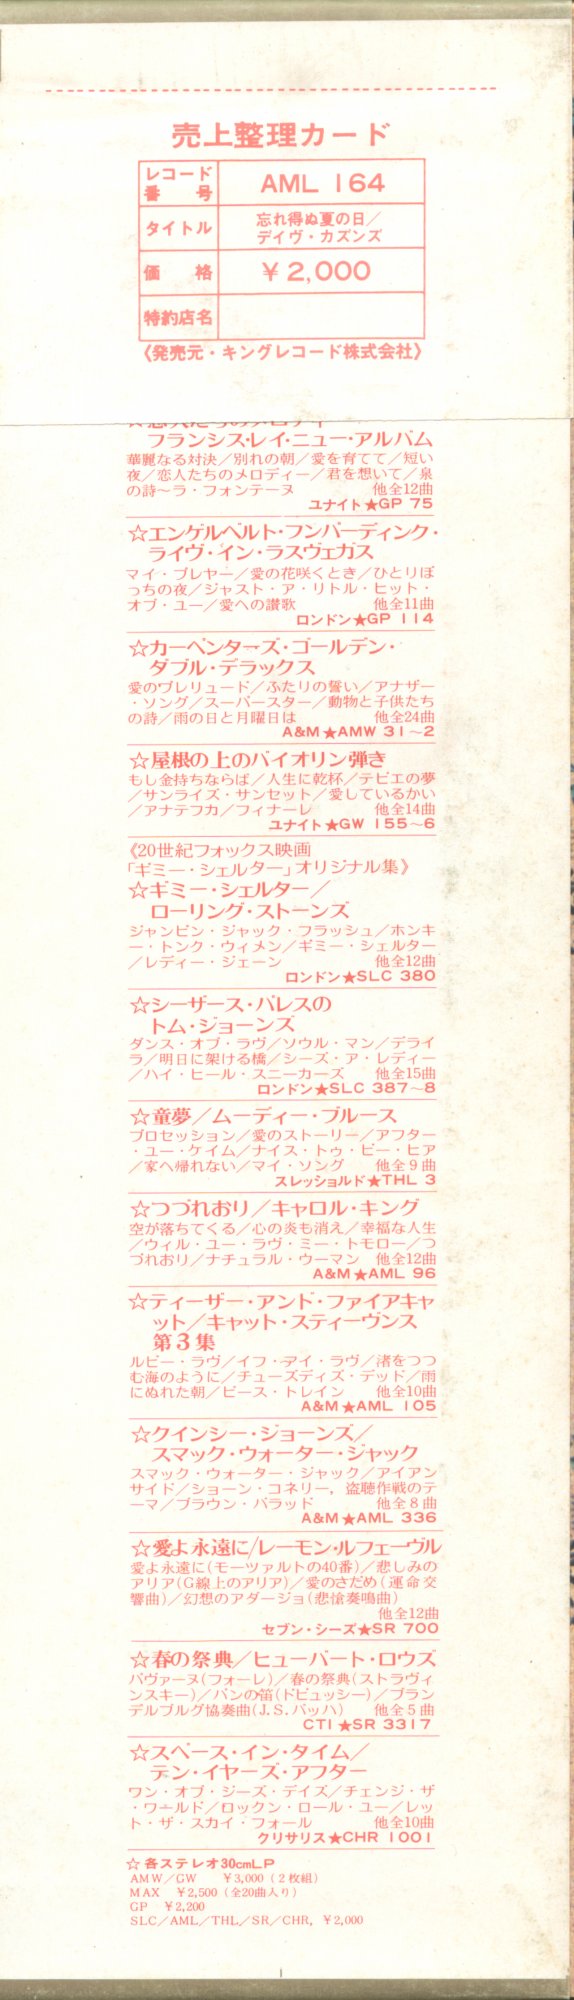 売上整理カード
レコード番号 AML 164
タイトル 忘れ得ぬ夏の日／
デイヴ・カズンズ
価格 ¥2,000
特約店名
〈発売元・キングレコード株式会社〉
フランシス・レイ・ニュー・アルバム
華麗なる対決／別れの朝／愛を育てて／短い
夜／恋人たちのメロディー／君を想いて／泉
の詩〜ラ・フォンテーヌ 他全12曲
ユナイト★GP 75
☆エンゲルベルト・フンパーディンク・
ライヴ・イン・ラスヴェガス
マイ・プレヤー／愛の花咲くとき／ひとりぼ
っちの夜／ジャスト・ア・リトル・ヒット・
オブ・ユー／愛への讃歌 他全11曲
ロンドン★GP 114
☆カーペンターズ・ゴールデン・
ダブル・デラックス
愛のプレリュード／ふたりの誓い／アナザー
・ソング／スーパースター／動物と子供たち
の詩／雨の日と月曜日は 他全24曲
A&M★AMW 31〜2
☆屋根の上のバイオリン弾き
もし金持ちならば／人生に乾杯／テビエの夢
／サンライズ・サンセット／愛しているかい
／アナテフカ／フィナーレ 他全14曲
ユナイト★GW 155〜6
《20世紀フォックス映画
「ギミー・シェルター」オリジナル集》
☆ギミー・シェルター／
ローリング・ストーンズ
ジャンピン・ジャック・フラッシュ／ホンキ
ー・トンク・ウィメン／ギミー・シェルター
／レディー・ジェーン 他全12曲
ロンドン★SLC 380
☆シーザース・パレスの
トム・ジョーンズ
ダンス・オブ・ラヴ／ソウル・マン／デライ
ラ／明日に架ける橋／シーズ・ア・レディー
／ハイ・ヒール・スニーカーズ 他全15曲
ロンドン★SLC 387〜8
☆童夢／ムーディー・ブルース
プロセッション／愛のストーリー／アフター
・ユー・ケイム／ナイス・トゥ・ビー・ヒア
／家へ帰れない／マイ・ソング 他全9曲
スレッショルド★THL 3
☆つづれおり／キャロル・キング
空が落ちてくる／心の炎も消え／幸福な人生
／ウィル・ユー・ラヴ・ミー・トモロー／つ
づれおり／ナチュラル・ウーマン 他全12曲
A&M★AML 96
☆ティーザー・アンド・ファイアキャ
ット／キャット・スティーヴンス
第3集
ルビー・ラヴ／イフ・アイ・ラヴ／渚をつつ
む海のように／チューズディズ・デッド／雨
にぬれた朝／ピース・トレイン 他全10曲
A&M★AML 105
☆クインシー・ジョーンズ／
スマック・ウォーター・ジャック
スマック・ウォーター・ジャック／アイアン
サイド／ショーン・コネリー，盗聴作戦のテ
ーマ／ブラウン・バラッド 他全8曲
A&M★AML 336
☆愛よ永遠に／レーモン・ルフェーヴル
愛よ永遠に(モーツァルトの40番)／悲しみの
アリア(G線上のアリア)／愛のさだめ(運命交
響曲)／幻想のアダージョ(悲愴奏鳴曲)
他全12曲
セブン・シーズ★SR 700
☆春の祭典／ヒューバート・ロウズ
パヴァーヌ(フォーレ)／春の祭典(ストラヴィ
ンスキー)／パンの笛(ドビュッシー)／ブラン
デルブルグ協奏曲(J.S.バッハ) 他全5曲
CTI★SR 3317
☆スペース・イン・タイム／
テン・イヤーズ・アフター
ワン・オブ・ジーズ・デイズ／チェンジ・ザ
・ワールド／ロックン・ロール・ユー／レッ
ト・ザ・スカイ・フォール 他全10曲
クリサリス★CHR 1001
☆各ステレオ30cmLP
AMW／GW ¥3,000（2枚組）
MAX ¥2,500（全20曲入り）
GP ¥2,200
SLC／AML／THL／SR／CHR，¥2,000